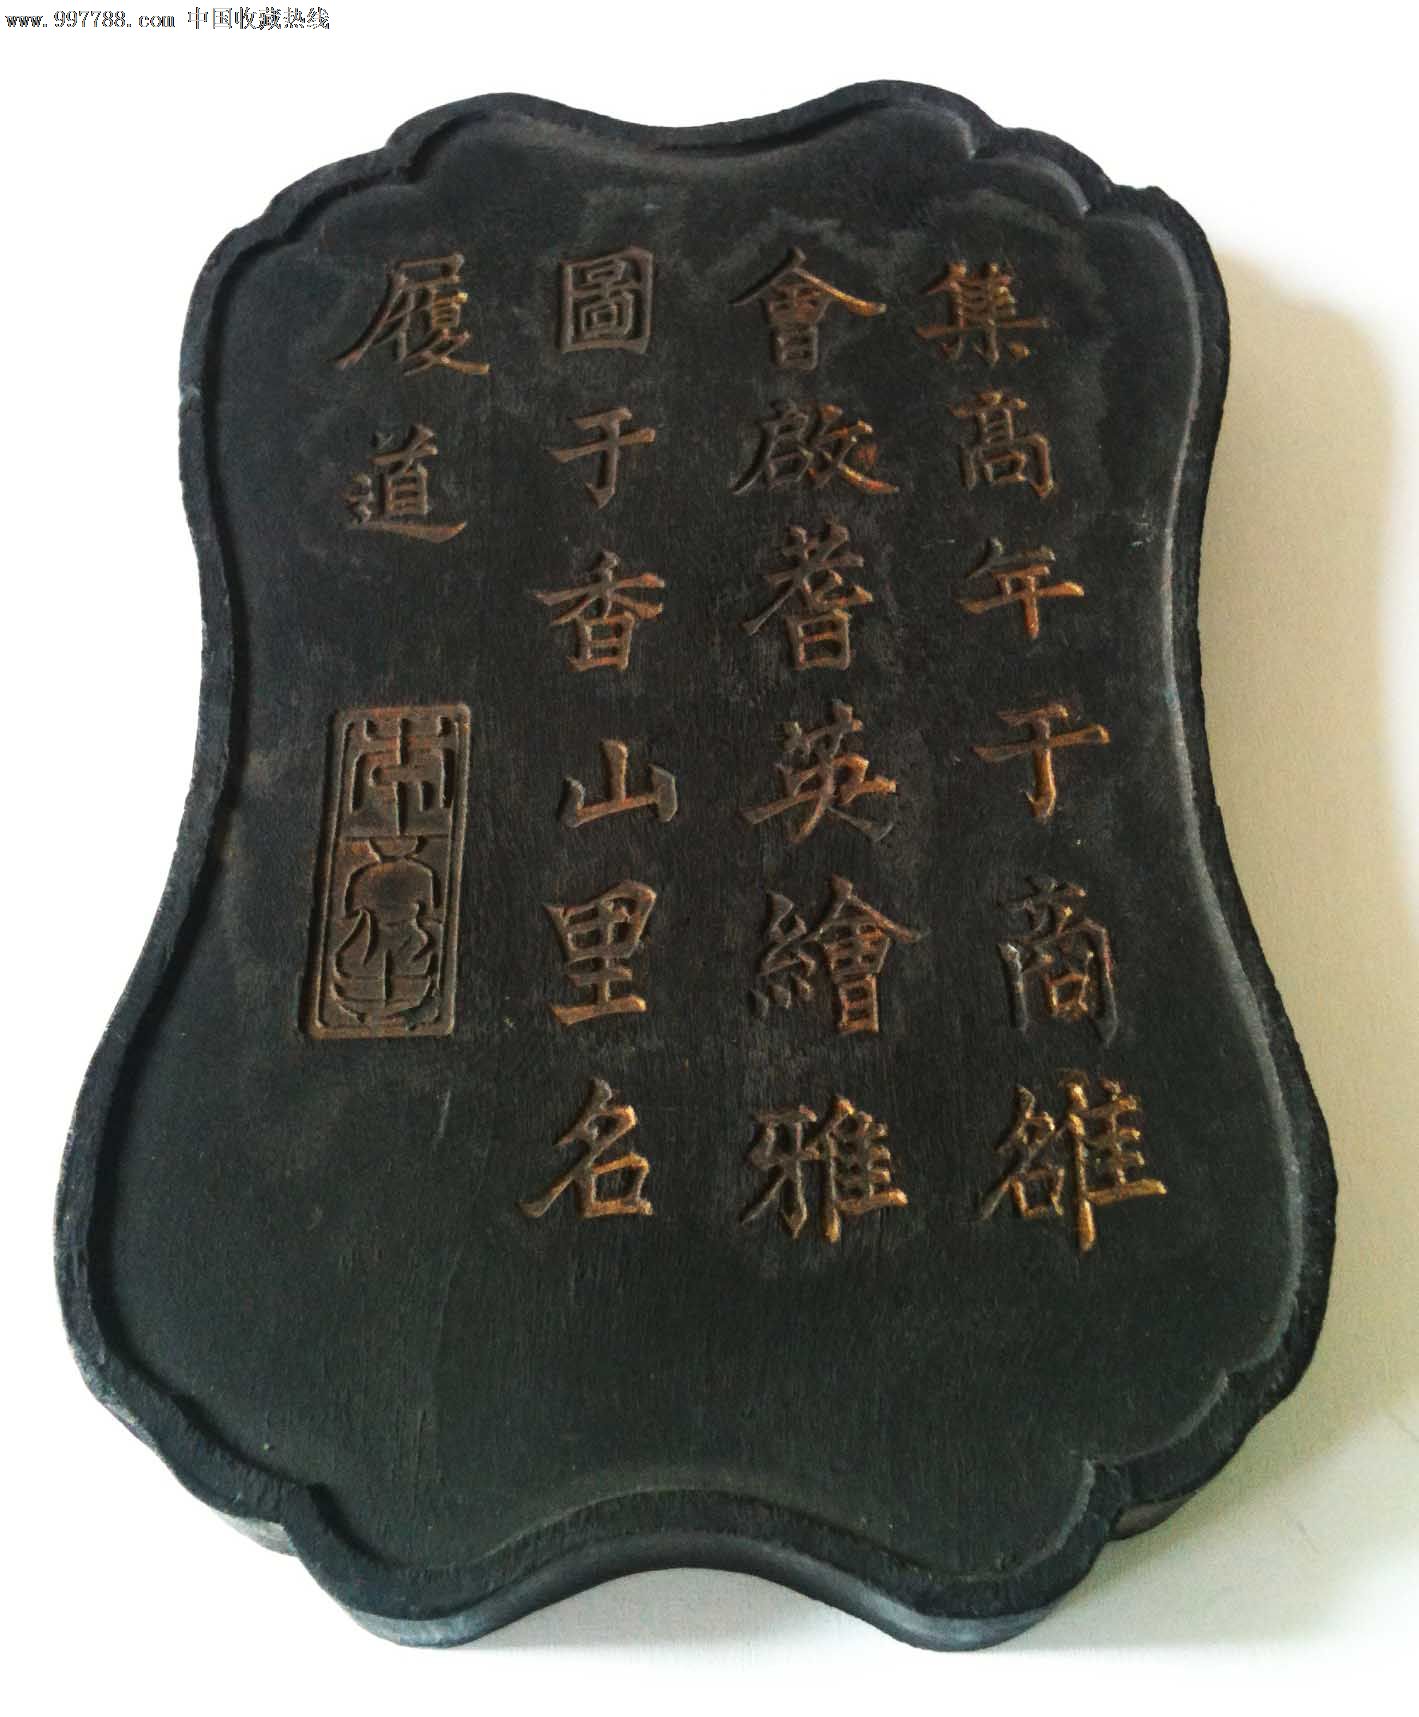 www.997788.com 中国收藏热线
集高年于商雒
會啟耆英繪雅
圖于香山里名
履道